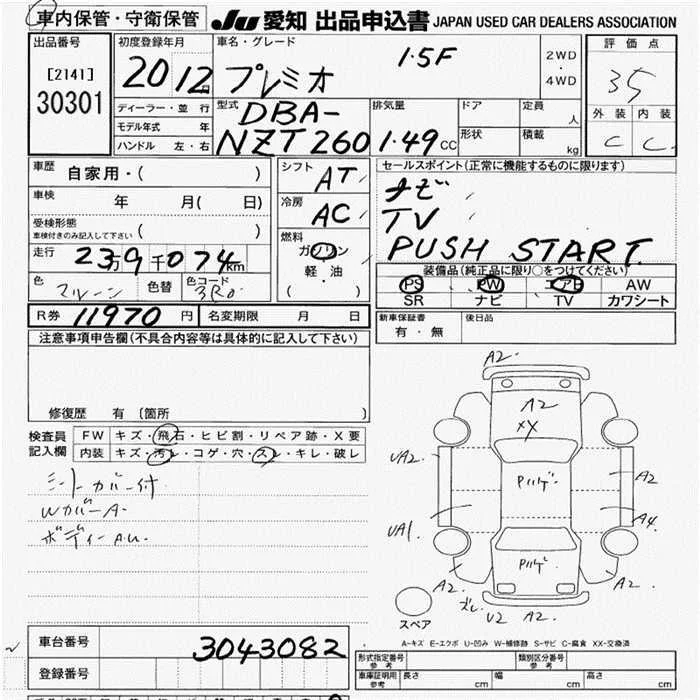 車内保管・守衛保管 JU 愛知 出品申込書 JAPAN USED CAR DEALERS ASSOCIATION
出品番号 初度登録年月 車名・グレード 評価点
[2141] 20 12月 プレミオ 1.5F 2WD ・ 4WD 35
30301 ディーラー・並行 型式 DBA- 排気量 ドア 定員 人 外装 内装
モデル年式 年 NZT260 1.49CC 形状 積載 kg C C
ハンドル 左・右
車歴 自家用・( ) シフト AT セールスポイント(正常に機能するものに限ります)
車検 年 月( 日) 冷房 AC ナビ
受検形態 TV
車検付きのみ記入して下さい ( ) 燃料 PUSH START
走行 23万9千074km ガソリン 装備品(純正品に限り○をつけてください)
色 マルーン 色替 色コード 3R0 軽・油 PS PW エアB AW
( ) SR ナビ TV カワシート
R券 11970円 名変期限 月 日 新車保証書 有・無 後日品
注意事項申告欄(不具合内容等は具体的に記入して下さい)
修復歴 有 〔箇所 〕
検査員 FW キズ・飛石・ヒビ割・リペア跡・X要
記入欄 内装 キズ・汚レ・コゲ・穴・スレ・キレ・破レ
シートカバー付
WカバーA-
ボディーAU-
A2-
A2
XY
UA2- Pルゲ A2
UA1- A4
Pルゲ
A2 A2
ズレ U2 A2-
スペア
A-キズ E-エクボ U-凹み W-補修跡 S-サビ C-腐食 XX-交換済
車台番号 3043082
登録番号
形式指定番号 参考 類別区分番号 参考
車庫証明用 参考 長さ cm 幅 cm 高さ cm